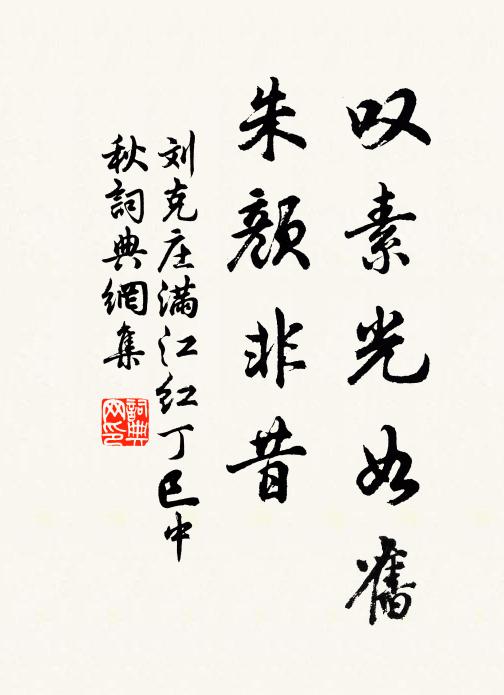 叹素光如舊
朱颜非昔
刘克庄满江红丁巳中
秋詞典網集
詞典网印